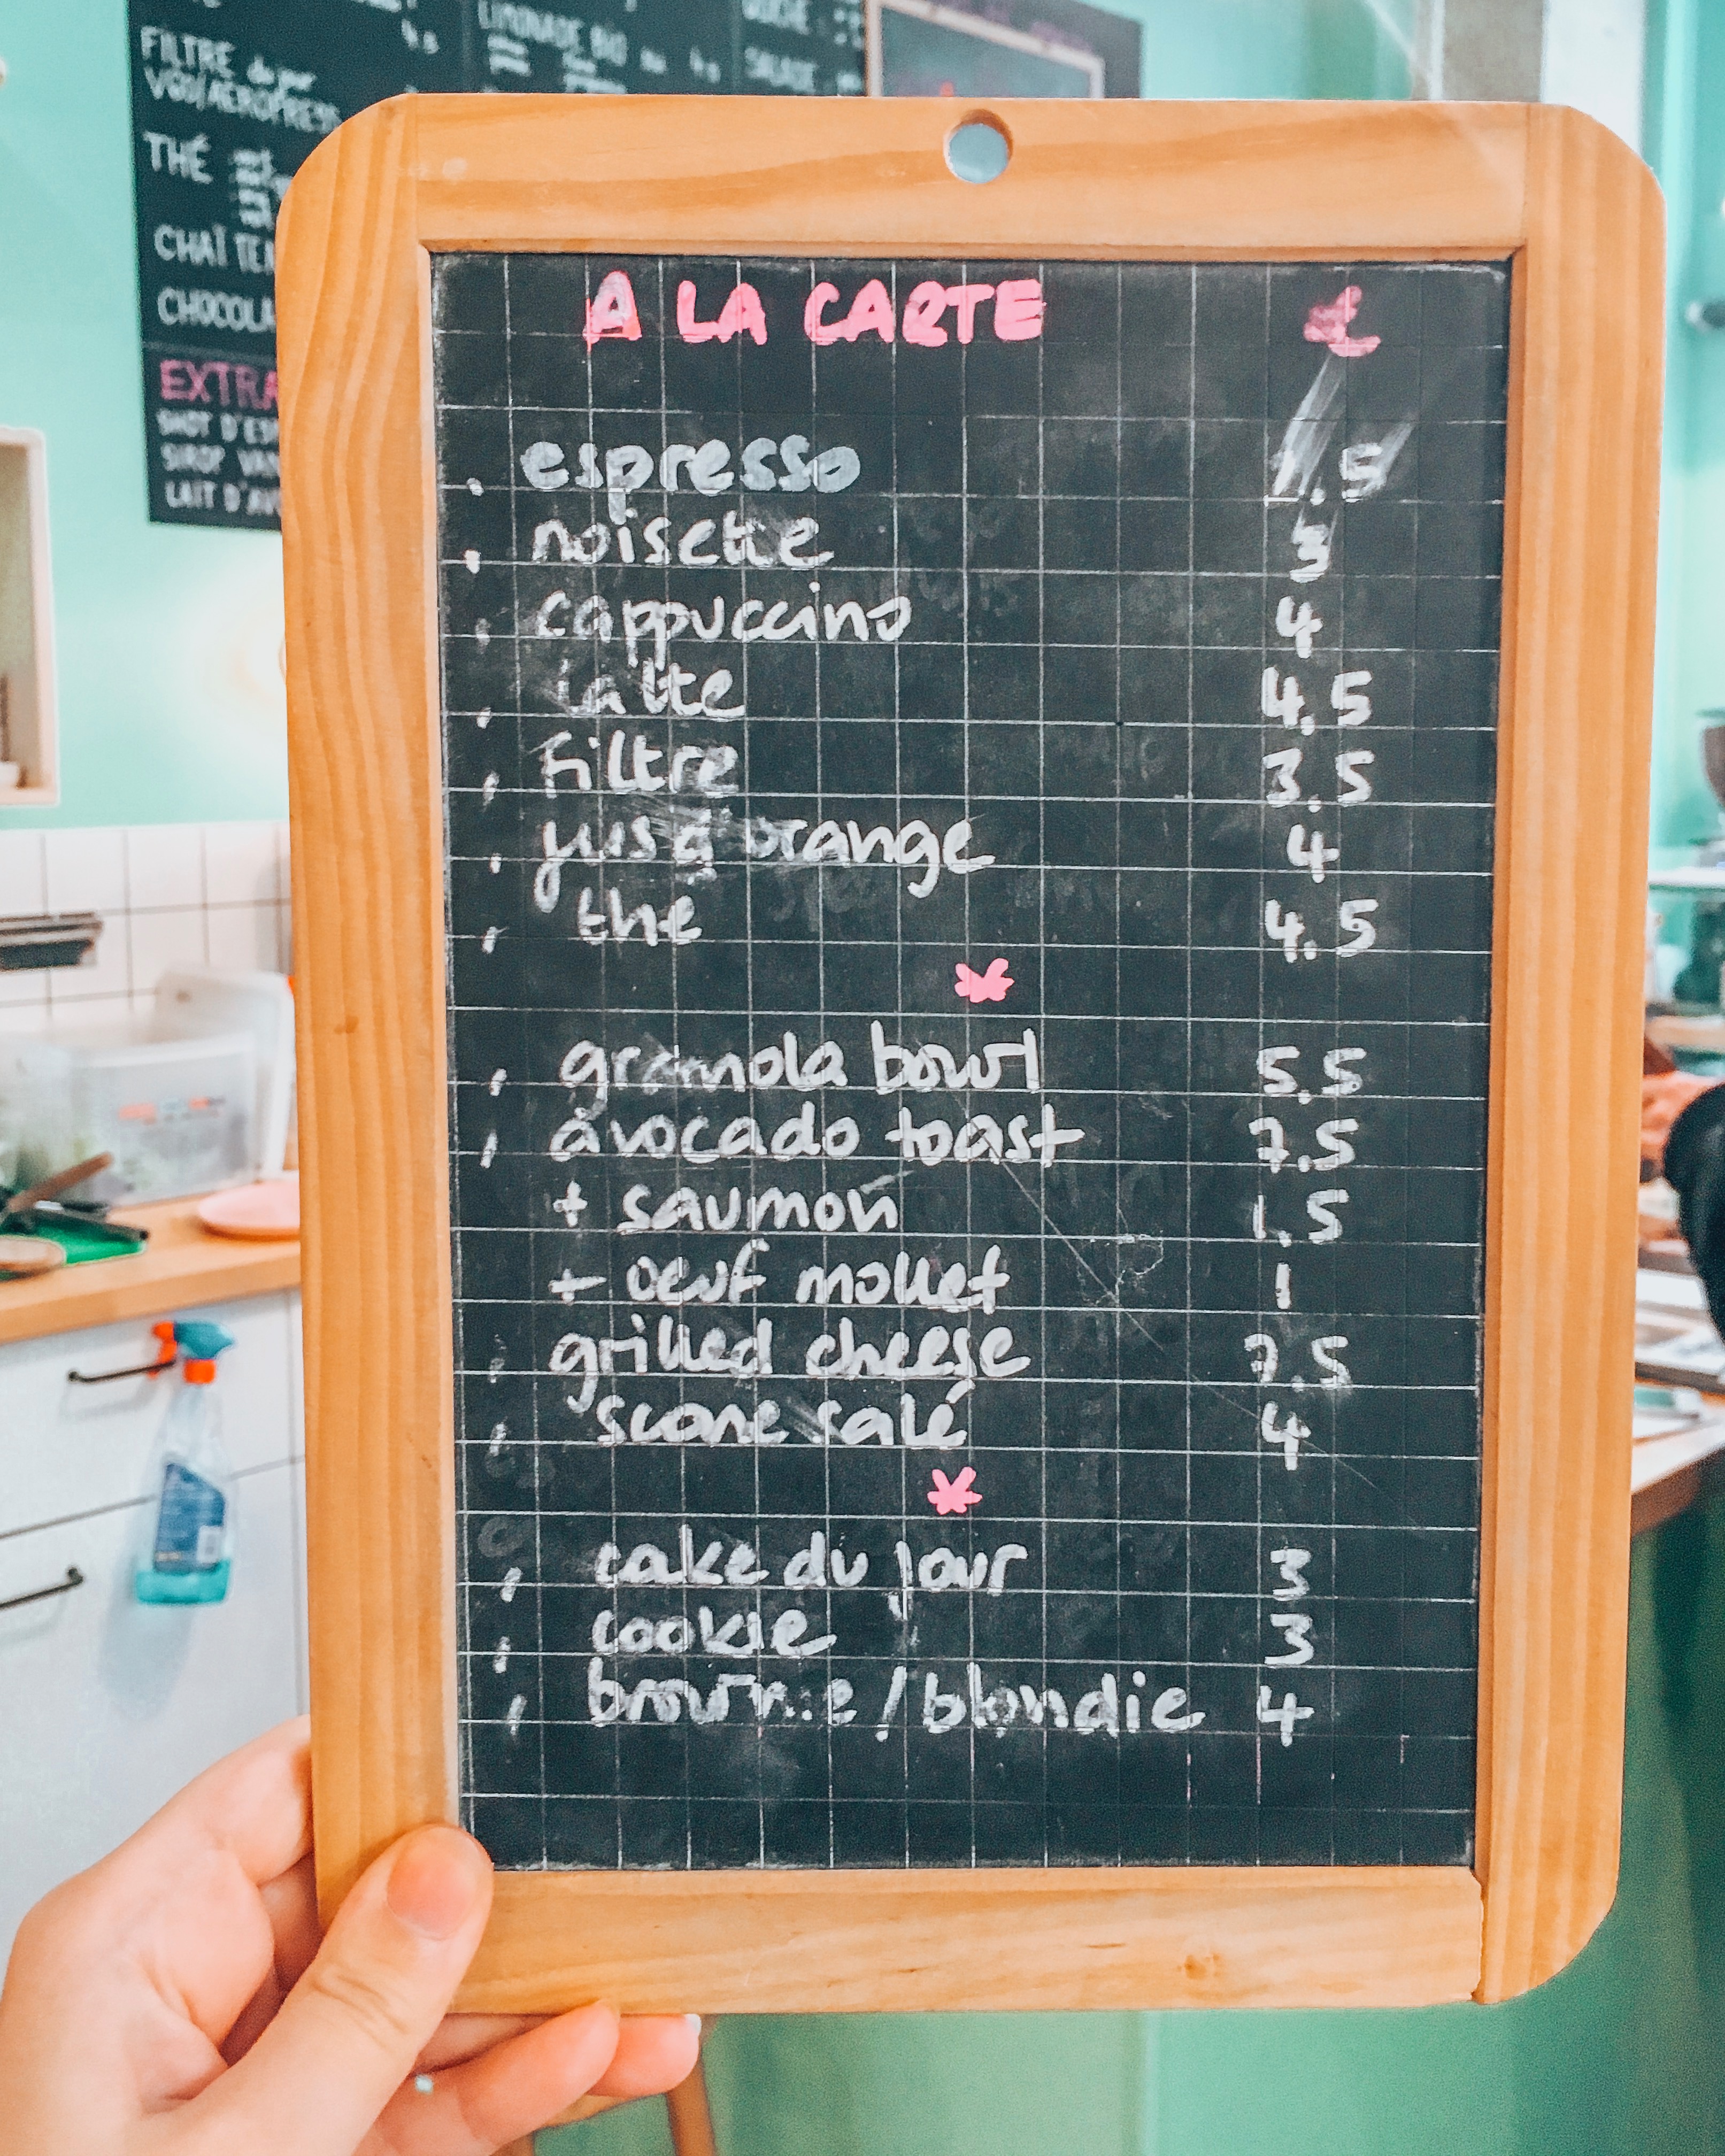 FILTRE du jour
V60/AEROPRESS
THÉ
CHAÏ TEA
CHOCOLA
EXTRA
SHOT D'ESP
SIROP VAN
LAIT D'AVO
LIMONADE BIO
SALADE
A LA CARTE
espresso 1.5
noisette 3
cappuccino 4
latte 4.5
Filtre 3.5
jus d'orange 4
thé 4.5
granola bowl 5.5
avocado toast 7.5
+ saumon 1.5
+ oeuf mollet 1
grilled cheese 7.5
scone salé 4
cake du jour 3
cookie 3
brownie / blondie 4